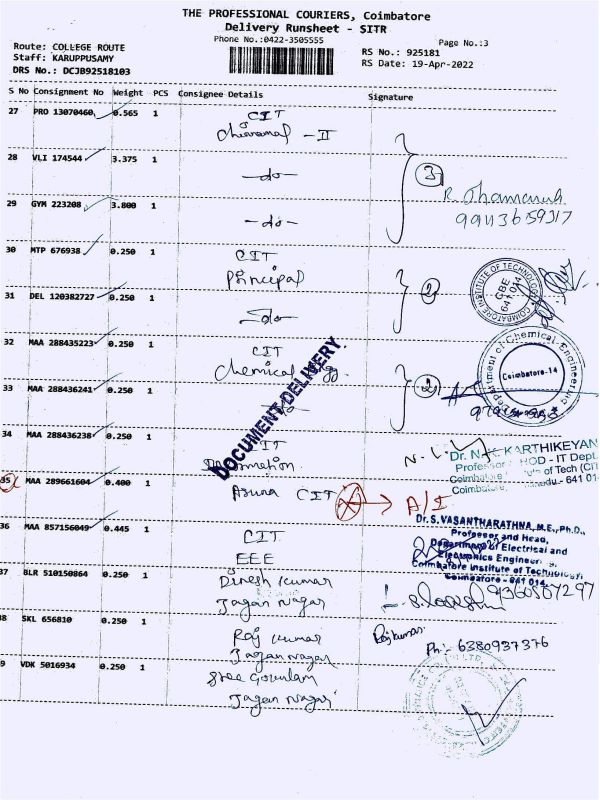 THE PROFESSIONAL COURIERS, Coimbatore
Delivery Runsheet - SITR
Phone No.:0422-3505555
Page No.:3
Route: COLLEGE ROUTE
Staff: KARUPPUSAMY
DRS No.: DCJB92518103
RS No.: 925181
RS Date: 19-Apr-2022
S No Consignment No Weight PCS Consignee Details Signature
27 PRO 13070460 0.565 1 CIT
- II
28 VLI 174544 3.375 1 -do-
3
29 GYM 223208 3.800 1 -do-
30 MTP 676938 0.250 1 CIT
principal
2
COIMBATORE INSTITUTE OF TECHNOLOGY
CBE
641 014
31 DEL 120382727 0.250 1 -do-
32 MAA 288435223 0.250 1 CIT
Chemical Engg
2
Department of Chemical Engineering
Coimbatore-14
33 MAA 288436241 0.250 1 -do-
DOCUMENT DELIVERY
34 MAA 288436238 0.250 1 CIT
Dr. N.K. KARTHIKEYAN
HOD - IT Dept.
Coimbatore
35 MAA 289661604 0.400 1 Aruna CIT A/I
36 MAA 857156049 0.445 1 CIT
EEE
Dr. S. VASANTHARATHNA, M.E., Ph.D.,
Professor and Head,
Department of Electrical and
Electronics Engineering,
Coimbatore Institute of Technology,
Coimbatore - 641 014.
37 BLR 510150864 0.250 1 Dinesh Kumar
Jagan Nagar
9360867297
38 SKL 656810 0.250 1 Raj Kumar
Jagan Nagar
Rajkumar
Ph:- 6380937376
39 VDK 5016934 0.250 1 Sree Gokulam
Jagan Nagar